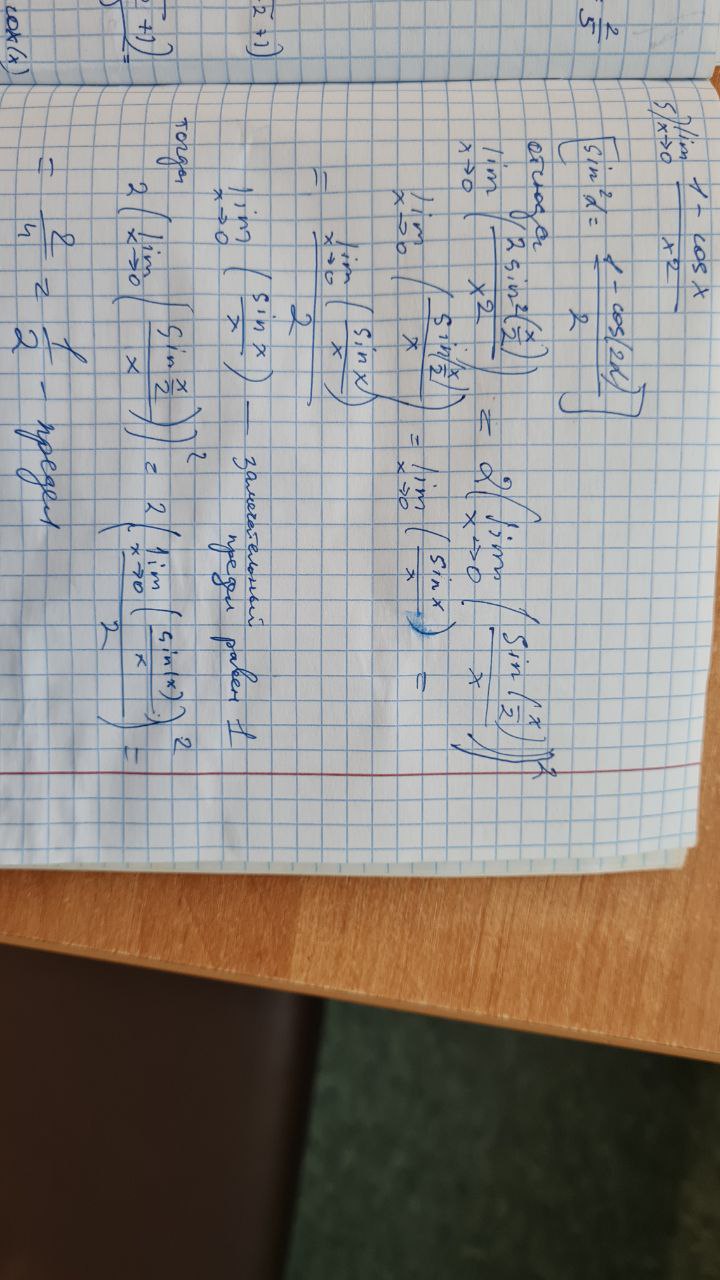 5) lim x→0 (1 - cos x)/x²
[sin²α = (1 - cos(2α))/2]
отсюда
lim x→0 (2 sin²(x/2)/x²) = 2(lim x→0 (sin(x/2)/x))²
lim x→0 (sin(x/2)/x) = lim x→0 (sin x/x) =
= lim x→0 (sin x/x)/2
lim x→0 (sin x/x) — замечательный
предел равен 1
тогда
2(lim x→0 (sin x/2/x))² = 2(lim x→0 (sin(x)/x)/2)² =
= 2/4 = 1/2 - предел
2/5
+1)
+1)
=
cos(x)